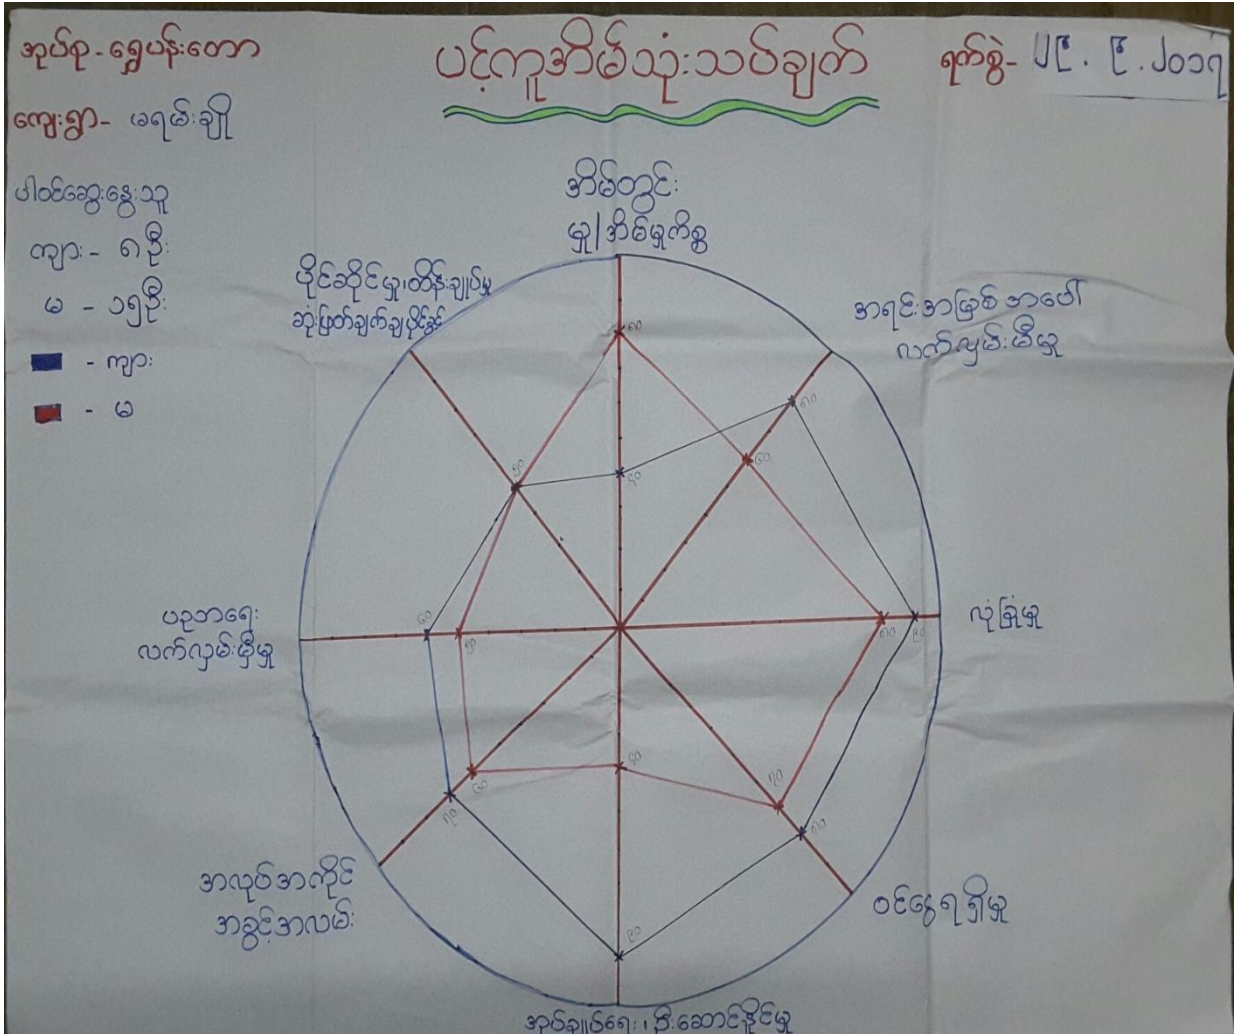 အုပ်စု - ရွှေပန်းတော
ပင့်ကူအိမ်သုံးသပ်ချက်
ရက်စွဲ - ၂၉.၉.၂၀၁၇
ကျေးရွာ - မရမ်းချို
ပါဝင်ဆွေးနွေးသူ
ကျား - ၈ဦး
မ - ၁၅ဦး
- ကျား
- မ
အိမ်တွင်း
မှု/အိမ်မှုကိစ္စ
အရင်းအမြစ်အပေါ်
လက်လှမ်းမီမှု
လုံခြုံမှု
ဝင်ငွေရရှိမှု
အုပ်ချုပ်ရေး၊ ဦးဆောင်နိုင်မှု
အလုပ်အကိုင်
အခွင့်အလမ်း
ပညာရေး
လက်လှမ်းမှီမှု
ပိုင်ဆိုင်မှု၊ ထိန်းချုပ်မှု
ဆုံးဖြတ်ချက်ချပိုင်ခွင့်
၈၀
၄၀
၈၀
၆၀
၈၀
၉၀
၇၀
၈၀
၄၀
၉၀
၆၀
၇၀
၆၀
၅၀
၅၀